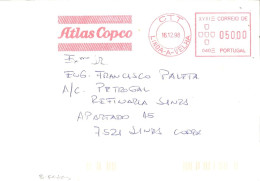 Atlas Copco
C.T.T.
16.12.98
LINDA-A-VELHA
CORREIO DE
05000
PORTUGAL
Exmo Sr
ENG. FRANCISCO PALETA
A/C PETROGAL
REFINARIA SINES
APARTADO 15
7521 SINES CODEX